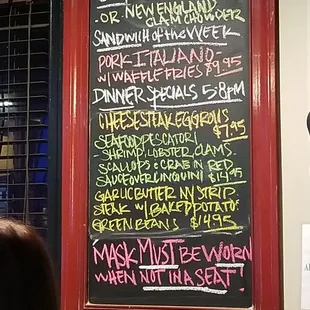 -OR- NEW ENGLAND
CLAM CHOWDER
SANDWICH OF THE WEEK
PORK ITALIANO
W/ WAFFLE FRIES $9.95
DINNER SPECIALS 5-8PM
CHEESESTEAK EGGROLLS
$7.95
SEAFOOD PESCATORI
SHRIMP, LOBSTER, CLAMS,
SCALLOPS & CRAB IN RED
SAUCE OVER LINGUINI $14.95
GARLIC BUTTER NY STRIP
STEAK W/ BAKED POTATO
GREEN BEANS $14.95
MASK MUST BE WORN
WHEN NOT IN A SEAT!